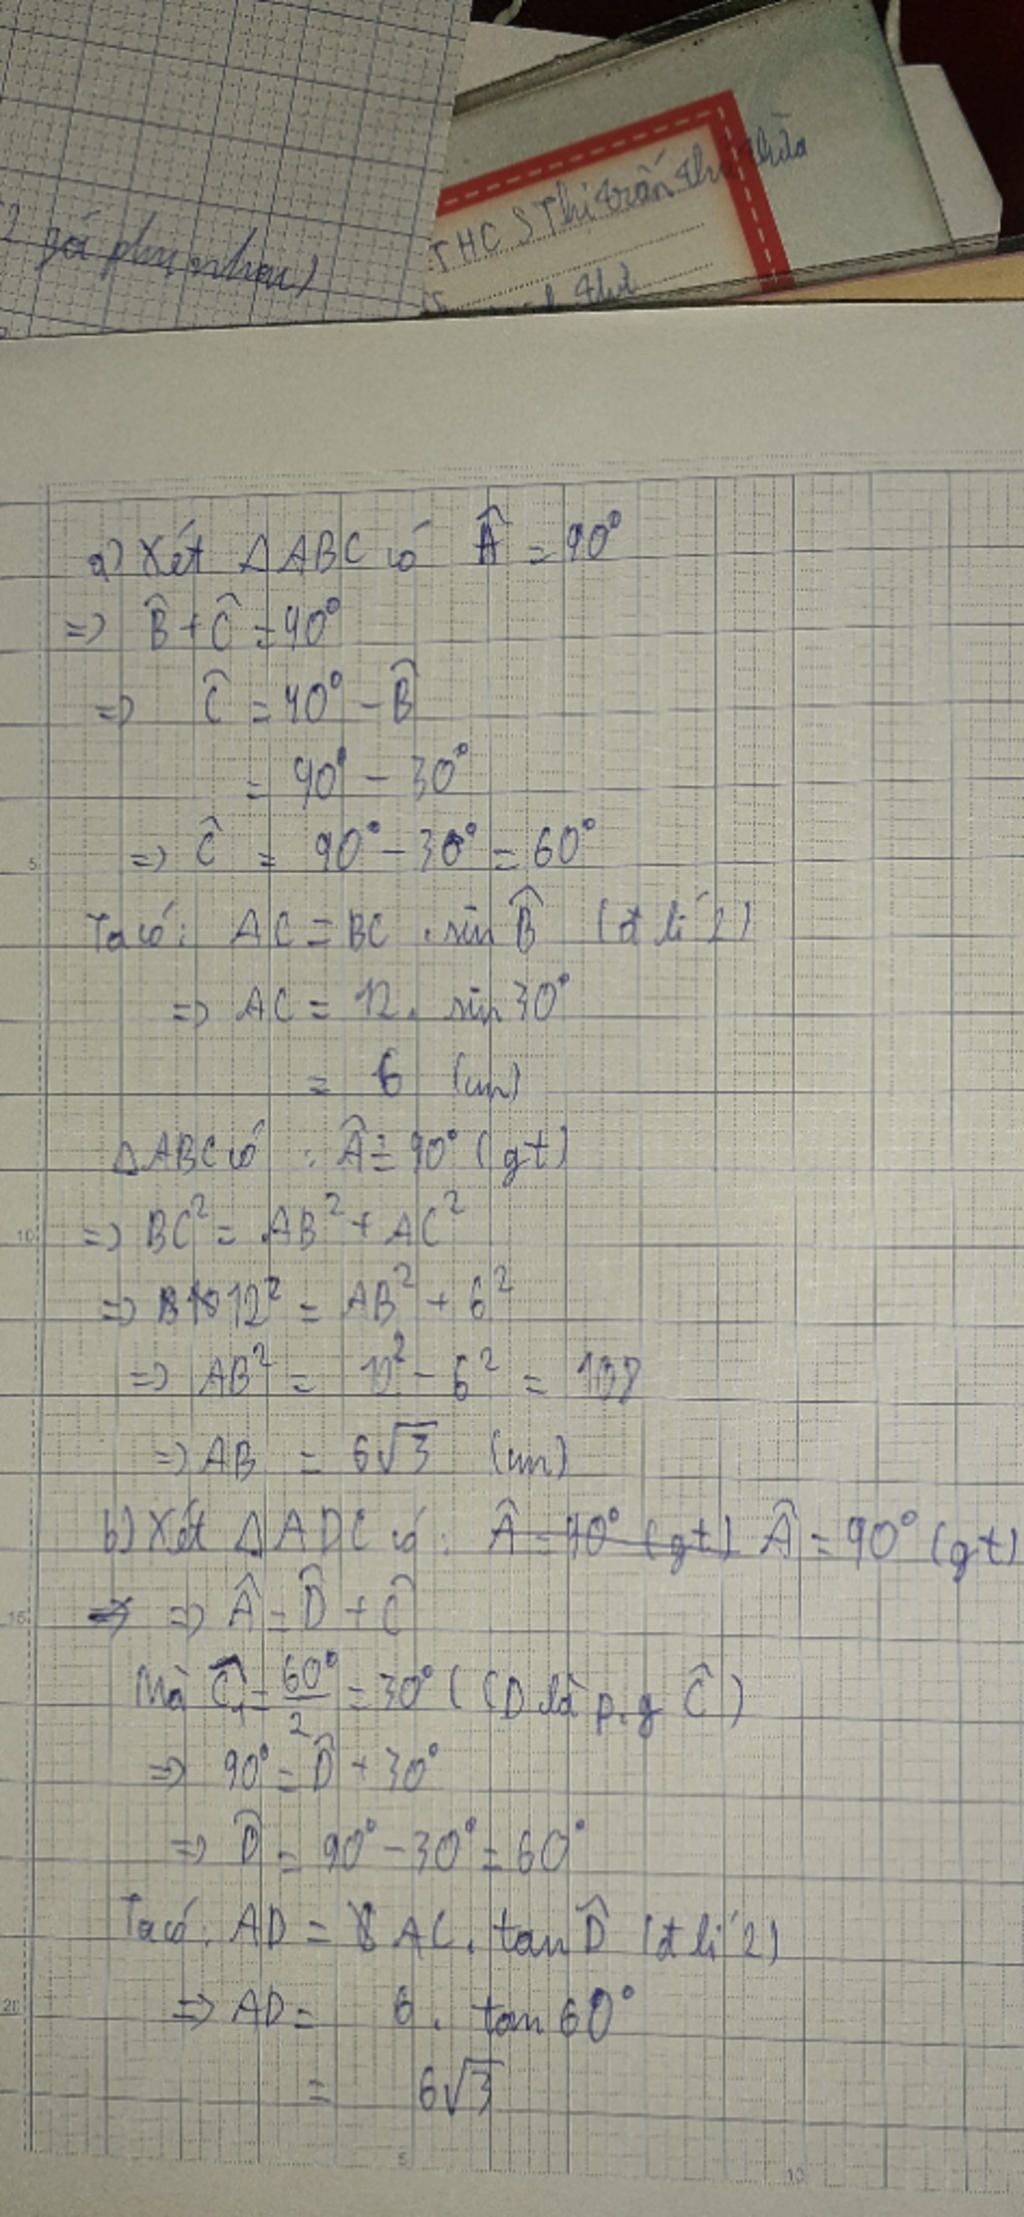 gói phụ nhau)
THCS Thị trấn thủ thừa
a) Xét ΔABC có Â = 90°
=> B̂ + Ĉ = 90°
=> Ĉ = 90° - B̂
= 90° - 30°
=> Ĉ = 90° - 30° = 60°
Ta có: AC = BC . sin B̂ (đ lí 2)
=> AC = 12. sin 30°
= 6 (cm)
ΔABC có : Â = 90° (gt)
=> BC² = AB² + AC²
=> 12² = AB² + 6²
=> AB² = 12² - 6² = 108
=> AB = 6√3 (cm)
b) Xét ΔADC có: Â = 90° (gt) Â = 90° (gt)
=> Â = D̂ + Ĉ
Mà Ĉ₁ = 60°/2 = 30° (CD là p.g Ĉ)
=> 90° = D̂ + 30°
=> D̂ = 90° - 30° = 60°
Ta có: AD = AC. tan D̂ (đ lí 2)
=> AD = 6. tan 60°
= 6√3
5
10
15
20
5
10